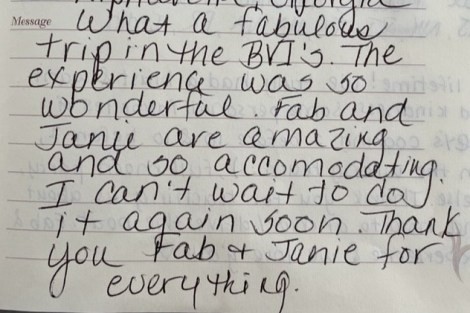 Message
What a fabulous
trip in the BVI's. The
experience was so
wonderful. Fab and
Janie are amazing
and so accomodating.
I can't wait to do
it again soon. Thank
you Fab & Janie for
everything.